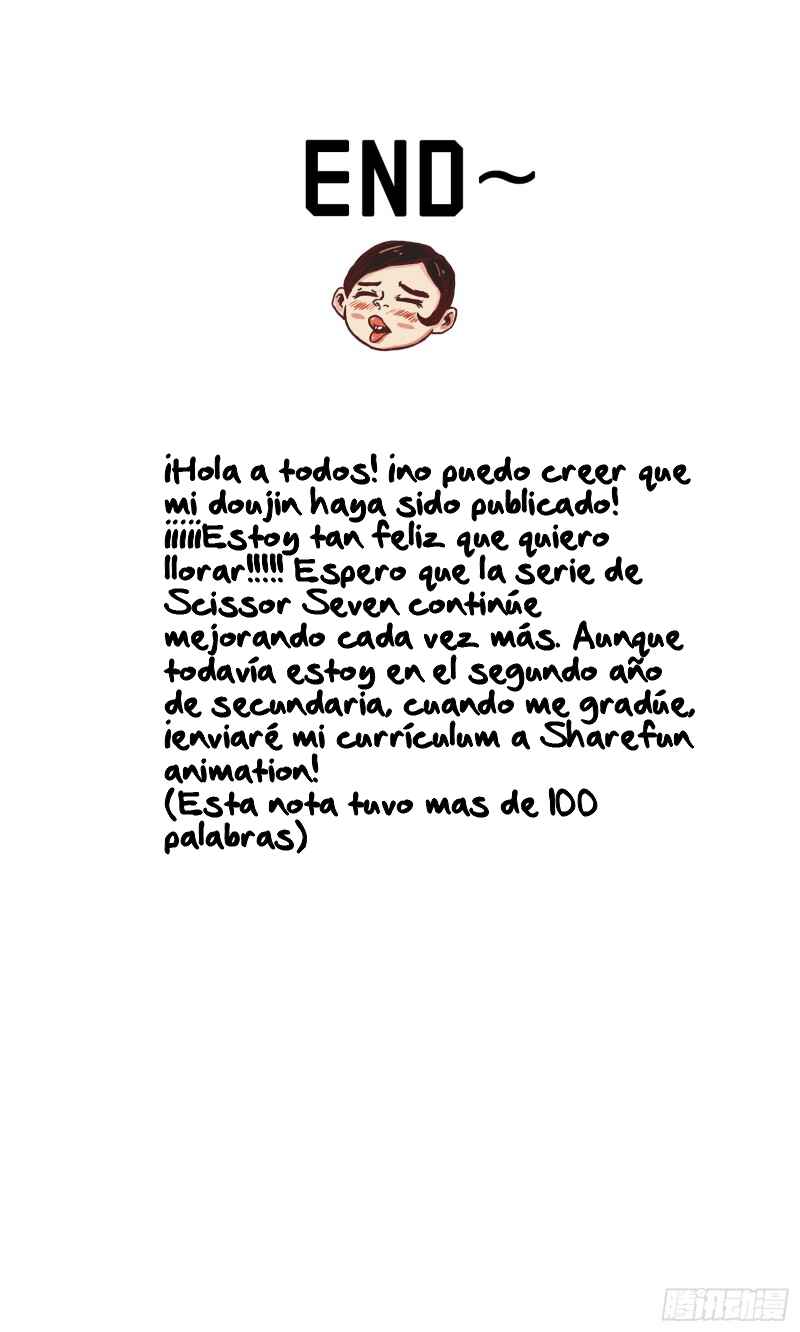 END~
¡Hola a todos! ¡no puedo creer que
mi doujin haya sido publicado!
¡¡¡¡¡Estoy tan feliz que quiero
llorar!!!!! Espero que la serie de
Scissor Seven continúe
mejorando cada vez más. Aunque
todavía estoy en el segundo año
de secundaria, cuando me gradúe,
¡enviaré mi currículum a Sharefun
animation!
(Esta nota tuvo mas de 100
palabras)
腾讯动漫